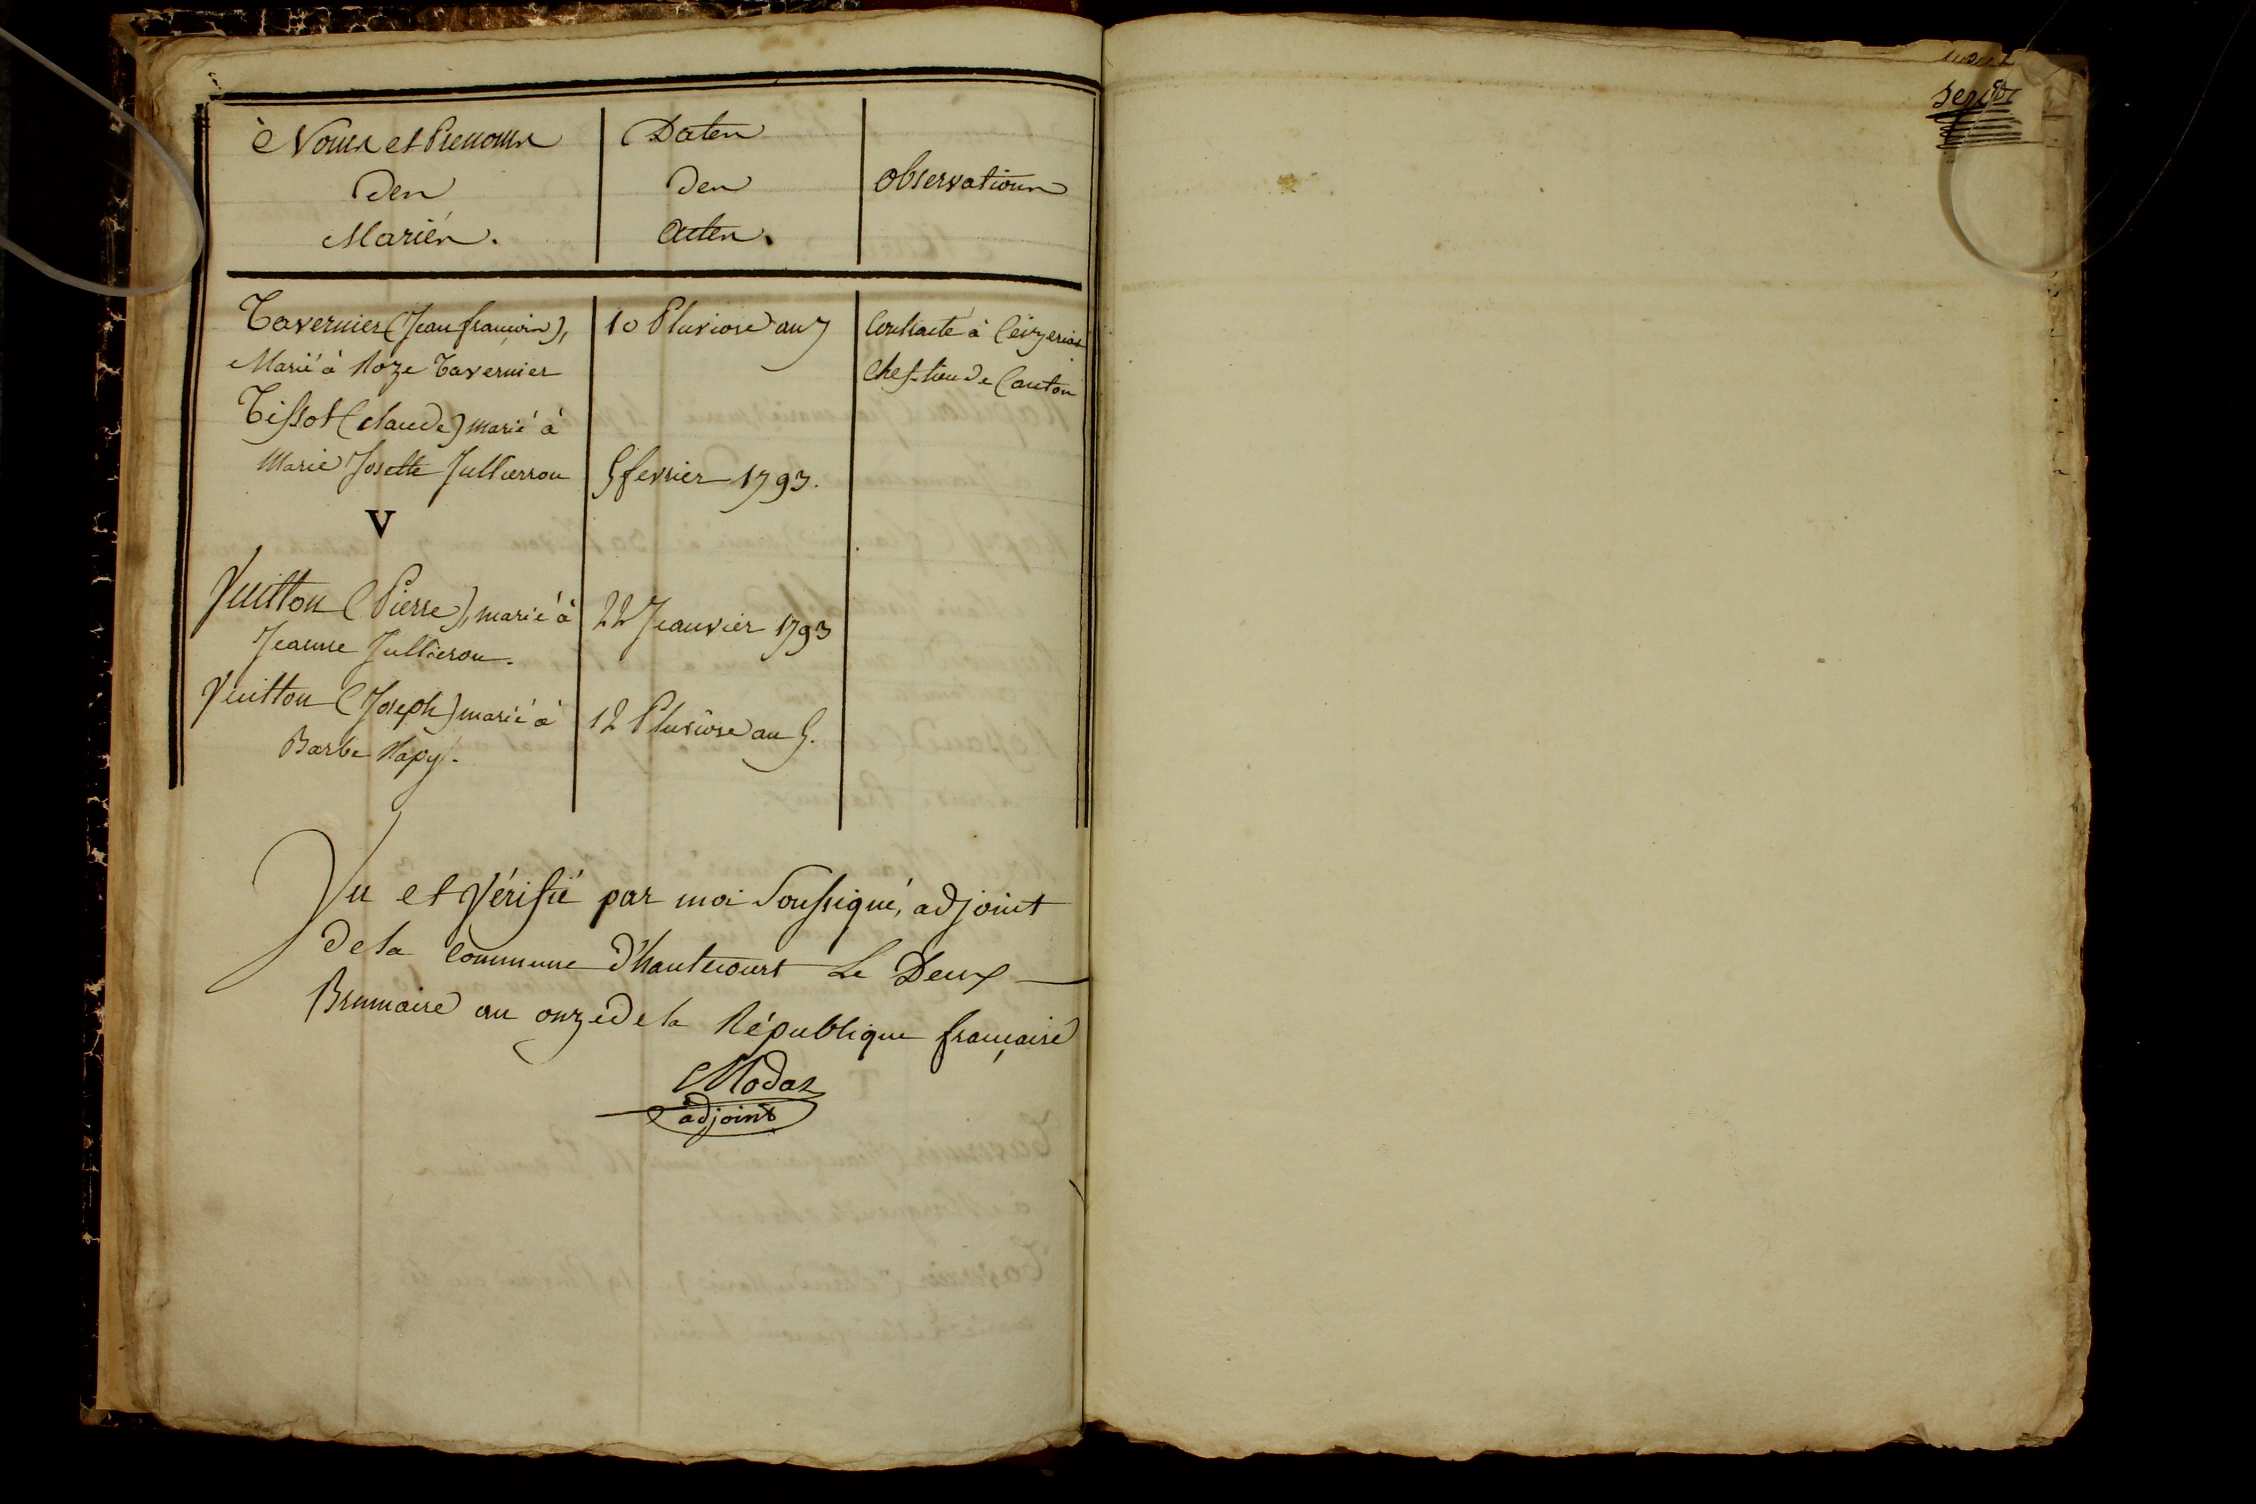 Noms et Prenoms
Des
Mariés.
Dates
Des
Actes.
Observations
Tavernier (Jean françois),
Marié à Roze Tavernier
10 Pluviose an 7
Contracté à Ceizeriat
Chef-lieu de Canton
Tissot (claude) marié à
Marie Josette Jullierron
5 fevrier 1793.
V
Vuitton (Pierre), marié à
Jeanne Jullieron.
22 Jeanvier 1793
Vuitton (Joseph) marié à
Barbe Rapy.
12 Pluviose an 5.
Vu et Vérifié par moi Soussigné, adjoint
de la Commune d'hautecourt Le Deux
Brumaire an onze de la République française
Modas
adjoint